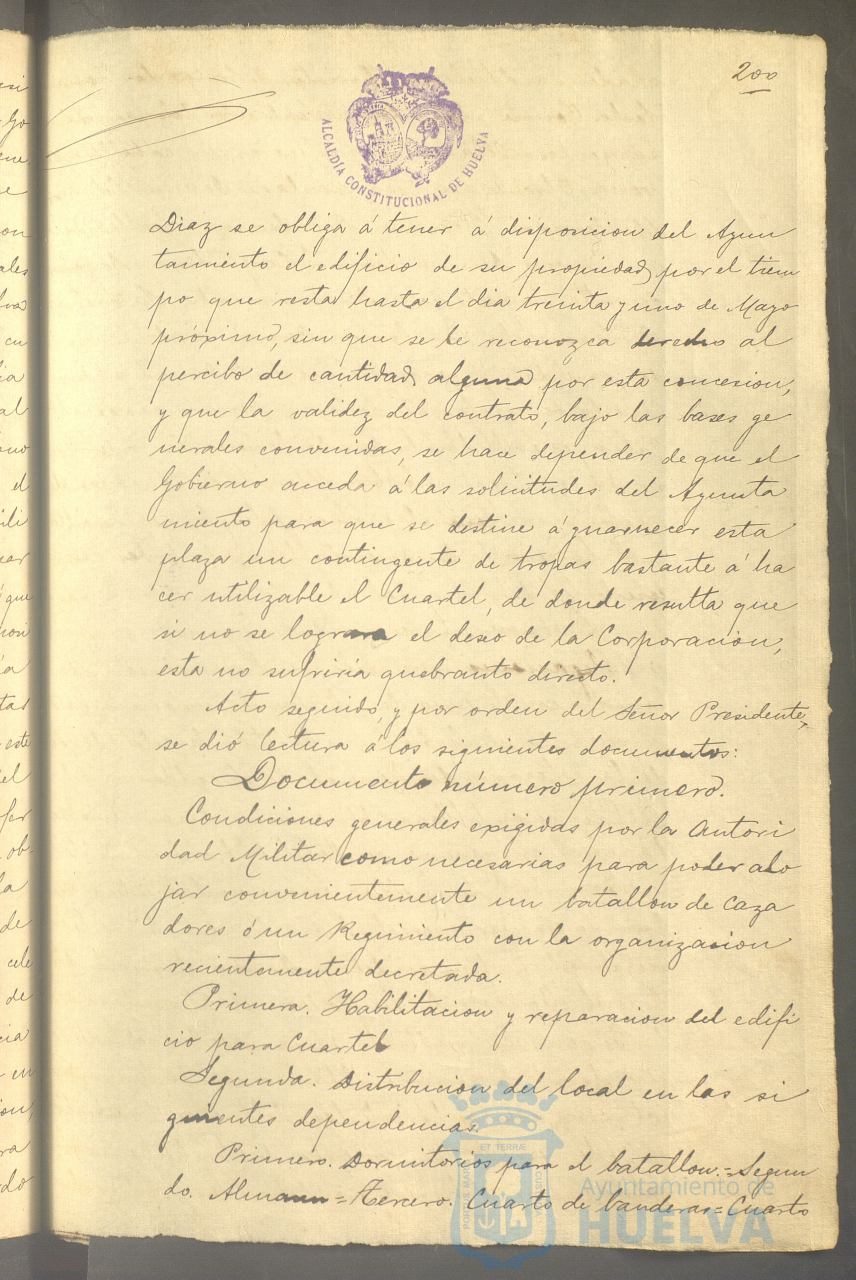 200
ALCALDÍA CONSTITUCIONAL DE HUELVA
Diaz se obliga á tener á disposicion del Ayun
tamiento el edificio de su propiedad, por el tiem
po que resta hasta el dia treinta y uno de Mayo
próximo, sin que se le reconozca derecho al
percibo de cantidad alguna por esta concesion,
y que la validez del contrato, bajo las bases ge
nerales convenidas, se hace depender de que el
Gobierno acceda á las solicitudes del Ayunta
miento para que se destine á guarnecer esta
plaza un contingente de tropas bastante á ha
cer utilizable el Cuartel, de donde resulta que
si no se lograra el deseo de la Corporacion,
esta no sufriria quebranto directo.
Acto seguido, y por orden del Señor Presidente,
se dió lectura á los siguientes documentos:
Documento número primero.
Condiciones generales exigidas por la Autori
dad Militar como necesarias para poder alo
jar convenientemente un batallon de Caza
dores ó un Regimiento con la organizacion
recientemente decretada.
Primera. Habilitacion y reparacion del edifi
cio para Cuartel
Segunda. Distribucion del local en las si
guientes dependencias.
Primero. Dormitorios para el batallon.=Segun
do. Almacen=Tercero. Cuarto de banderas=Cuarto
Ayuntamiento de
HUELVA